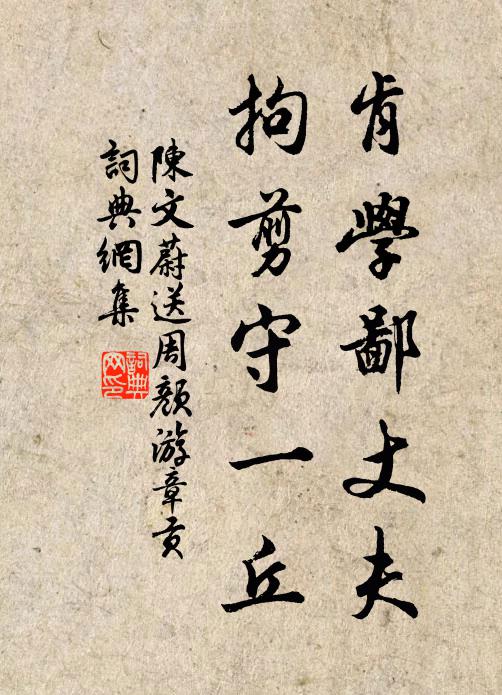 肯學鄙丈夫
拘剪守一丘
陳文蔚送周顏游章貢
詞典網集
詞典网印